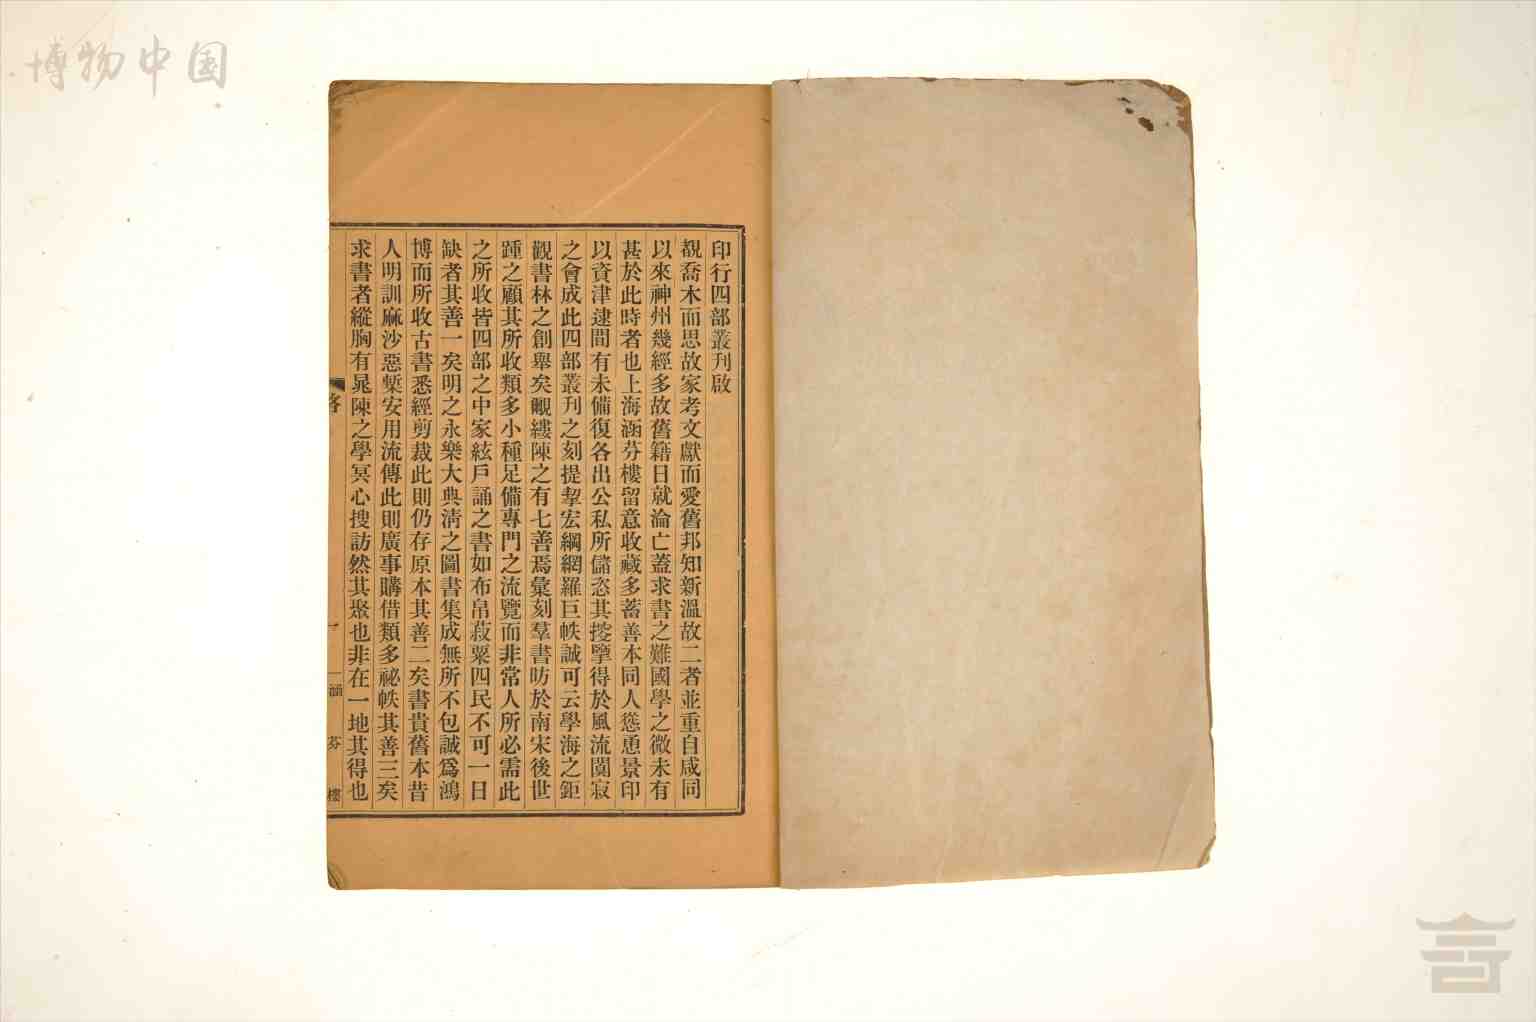 博物中国
印行四部叢刊啟
覩喬木而思故家考文獻而愛舊邦知新溫故二者並重自咸同
以來神州幾經多故舊籍日就淪亡蓋求書之難國學之微未有
甚於此時者也上海涵芬樓留意收藏多蓄善本同人慫恿景印
以資津逮間有未備復各出公私所儲恣其搜擥得於風流闃寂
之會成此四部叢刊之刻提挈宏綱網羅巨帙誠可云學海之鉅
觀書林之創舉矣覼縷陳之有七善焉彙刻羣書昉於南宋後世
踵之顧其所收類多小種足備專門之流覽而非常人所必需此
之所收皆四部之中家絃戶誦之書如布帛菽粟四民不可一日
缺者其善一矣明之永樂大典淸之圖書集成無所不包誠爲鴻
博而所收古書悉經剪裁此則仍存原本其善二矣書貴舊本昔
人明訓麻沙惡槧安用流傳此則廣事購借類多祕帙其善三矣
求書者縱胸有晁陳之學冥心搜訪然其聚也非在一地其得也
一
涵芬樓